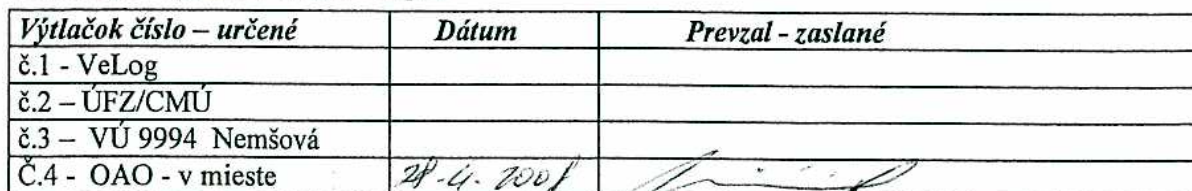 Výtlačok číslo – určené Dátum Prevzal - zaslané
č.1 - VeLog
č.2 – ÚFZ/CMÚ
č.3 – VÚ 9994 Nemšová
Č.4 - OAO - v mieste 28.4.2008